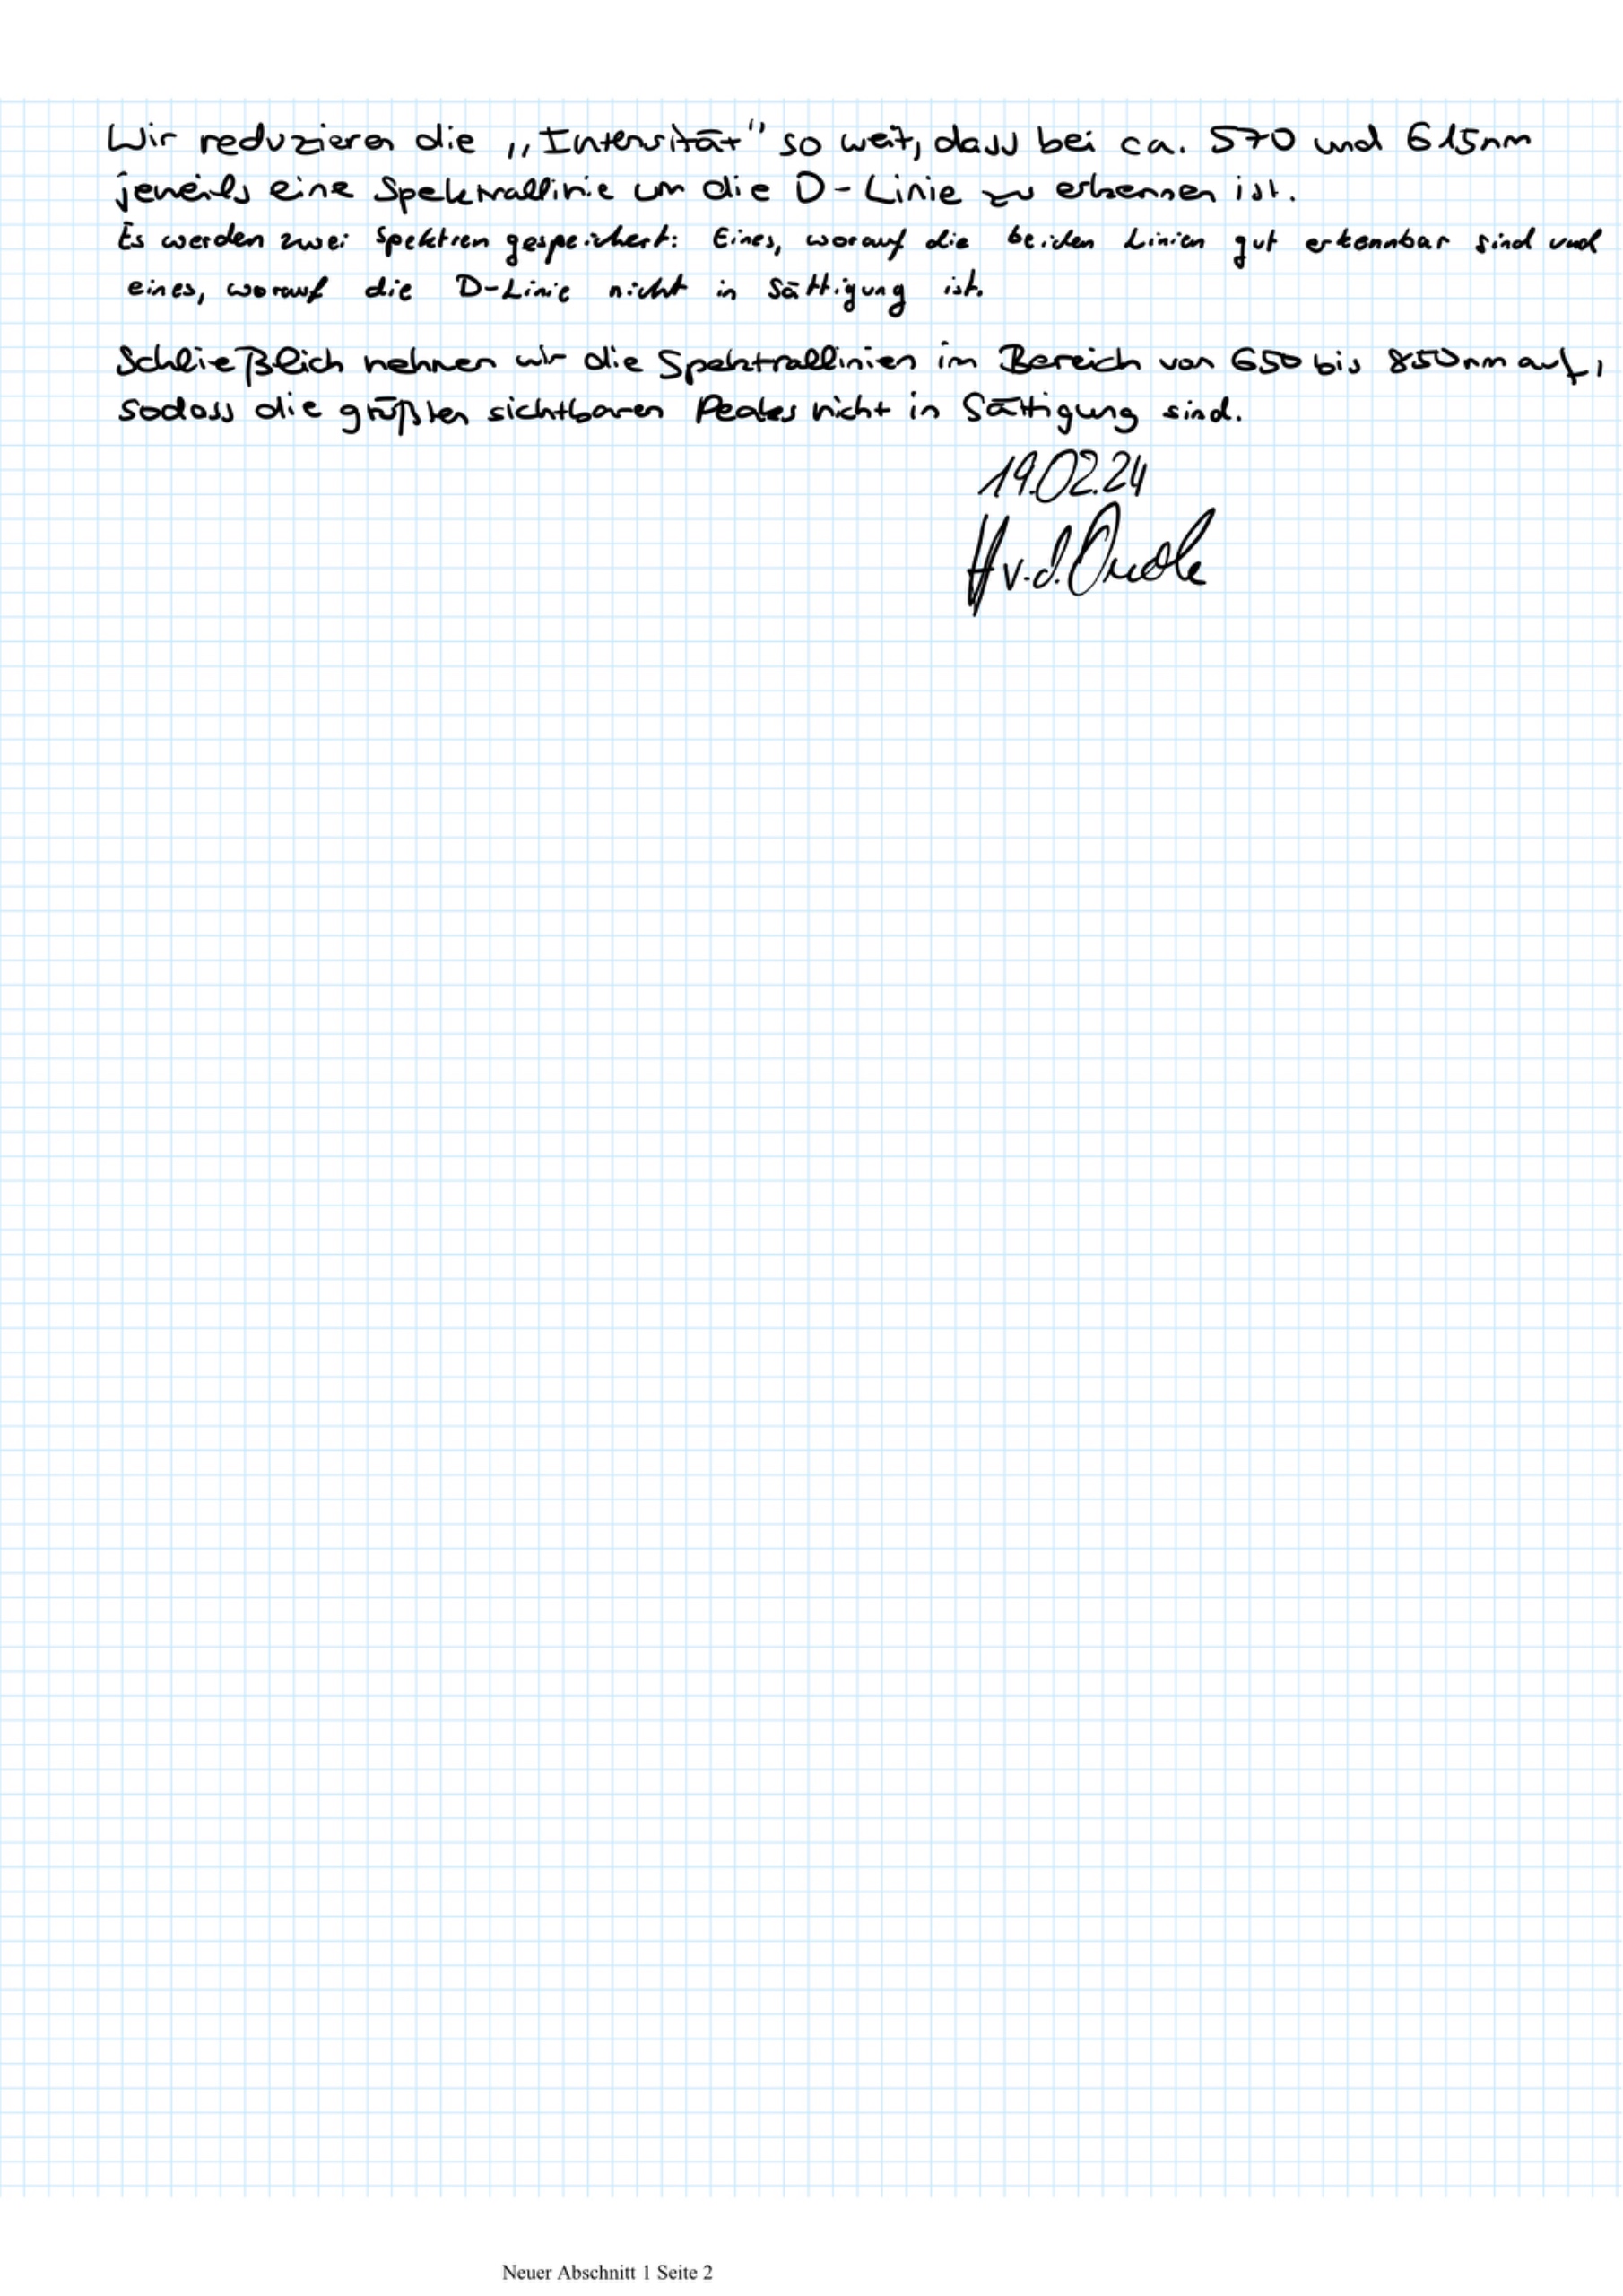 Wir reduzieren die „Intensität" so weit, dass bei ca. 570 und 615nm
jeweils eine Spektrallinie um die D-Linie zu erkennen ist.
Es werden zwei Spektren gespeichert: Eines, worauf die beiden Linien gut erkennbar sind und
eines, worauf die D-Linie nicht in Sättigung ist.
Schließlich nehmen wir die Spektrallinien im Bereich von 650 bis 850nm auf,
sodass die größten sichtbaren Peaks nicht in Sättigung sind.
19.02.24
v.d.
Neuer Abschnitt 1 Seite 2